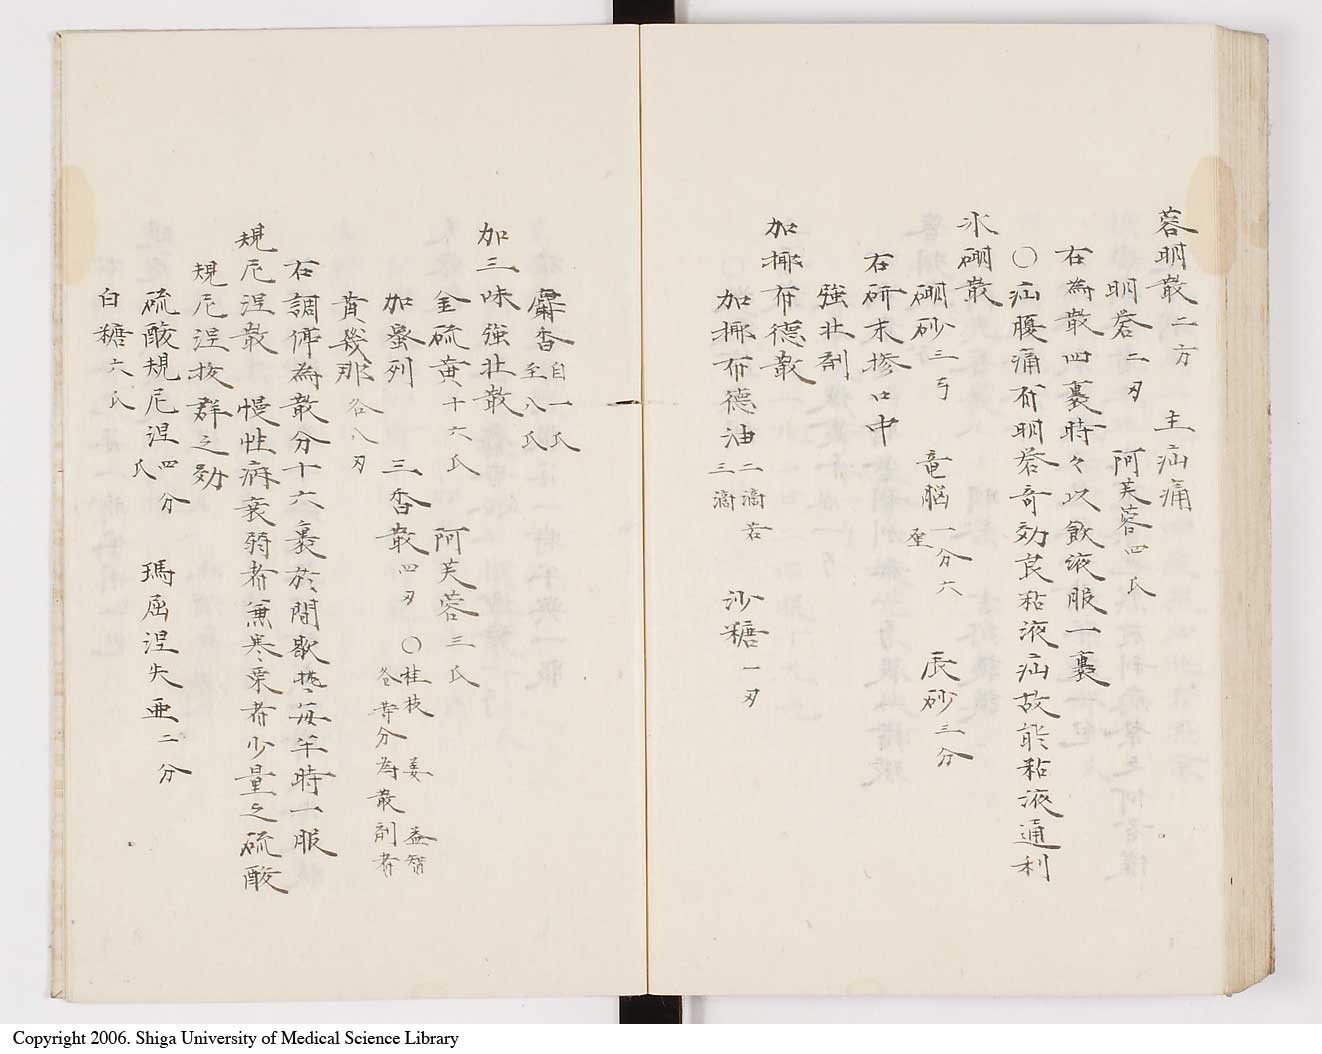 蓉明散 二方 主疝痛
明礬二刄 阿芙蓉四氏
右為散四裹時々以飲液服一裹
〇疝腹痛有明礬奇効良粘液疝故能粘液通利
氷硼散
硼砂三弓 竜脳一分六至 辰砂三分
右研末掺口中
強壮剤
加揶布德散
加揶布德油二滴若三滴 沙糖一刄
麝香自一氏至八氏
加三味強壮散
金硫黄十六氏 阿芙蓉三氏
加蛩列 三香散四刄 〇桂枝 姜 益智各等分為散剤者
莦幾那各八刄
右調停為散分十六裹於間歇憷毎半時一服
規尼涅散 慢性病衰弱者兼寒栗者少量之硫酸
規尼涅抜群之効
硫酸規尼涅四分氏 瑪屈涅失亜二分
白糖六氏
Copyright 2006. Shiga University of Medical Science Library